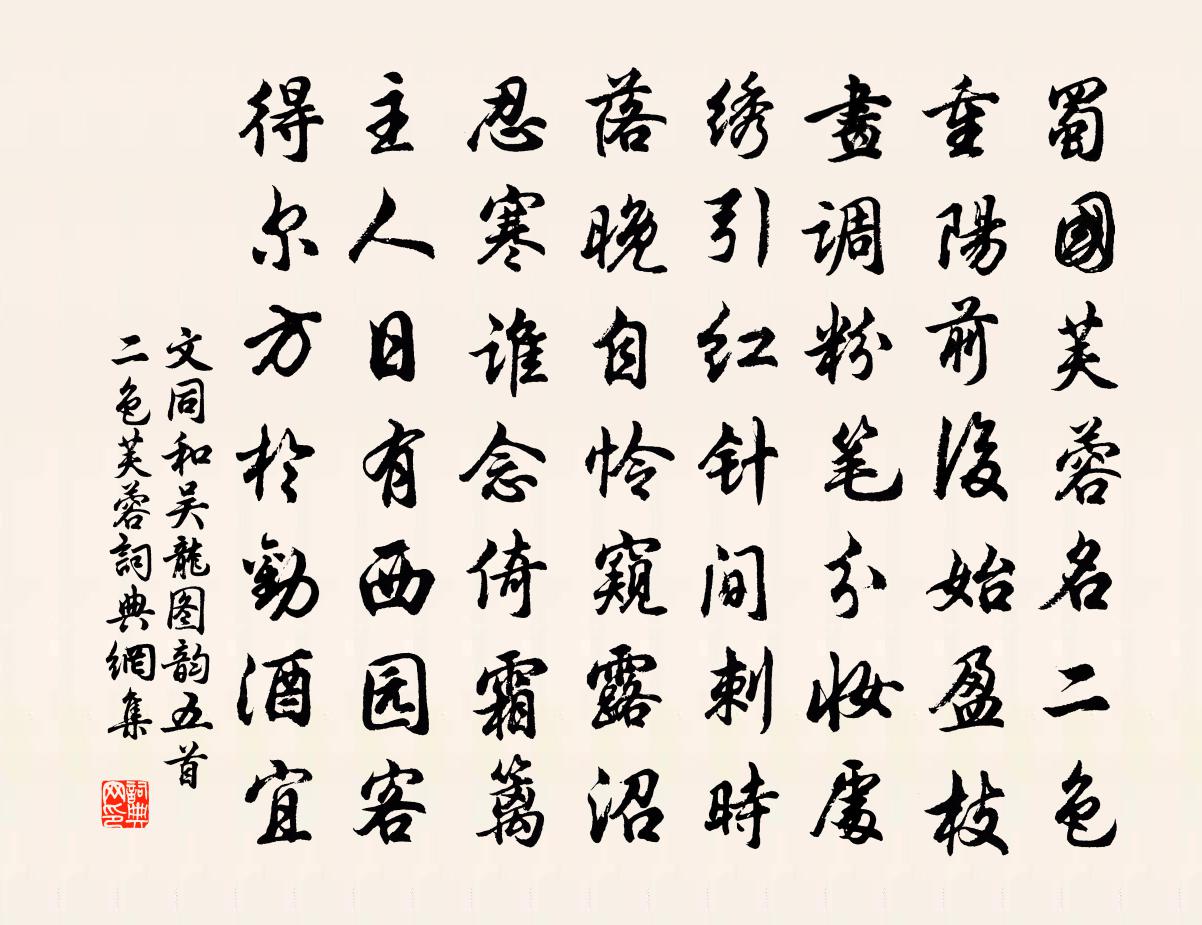 蜀國芙蓉名二色
重陽前後始盈枝
畫調粉笔分妆處
绣引红针间刺時
落晚自怜窺露沼
忍寒谁念倚霜篱
主人日有西园客
得尔方於勸酒宜
文同和吴龍图韵五首
二色芙蓉詞典網集
詞典
网印